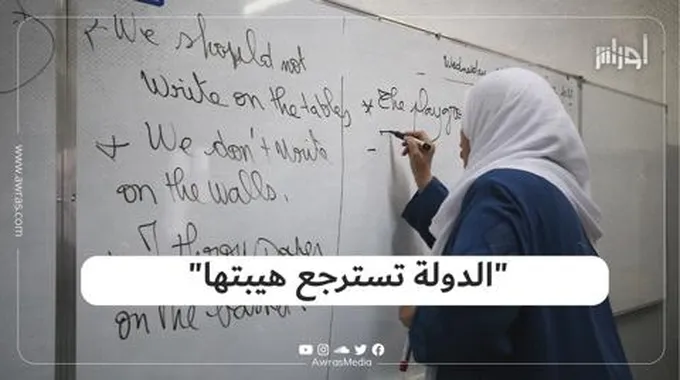 We should not
Write on the tables
We don't write
on the walls.
on the
* The playg
Wednesday
أوراس
www.awras.com
"الدولة تسترجع هيبتها"
AwrasMedia